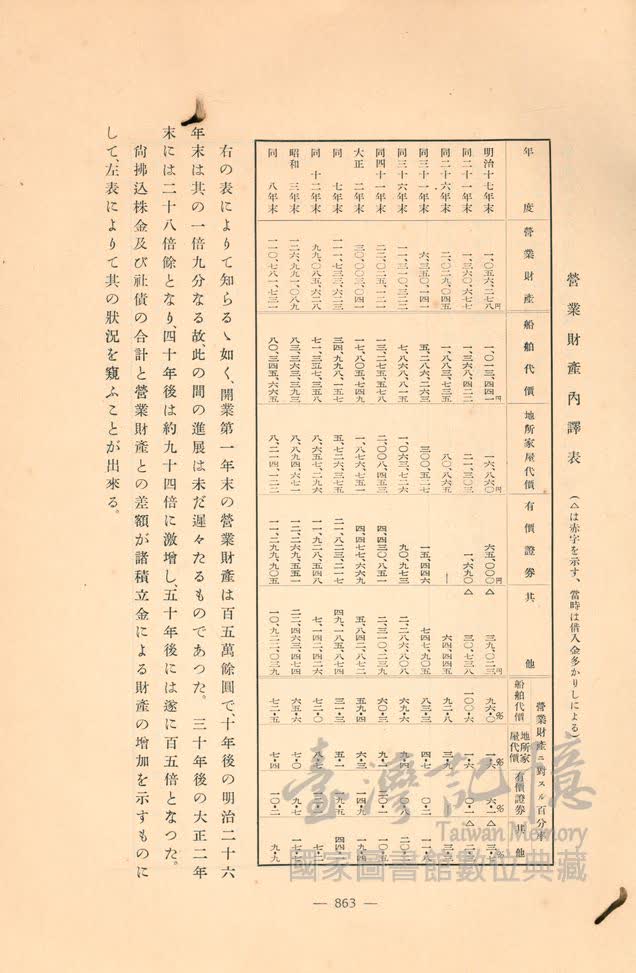 營業財產內譯表
(△は赤字を示す、當時は借入金多かりしによる)
年度 營業財產 船舶代價 地所家屋代價 有價證券 其他 營業財產ニ對スル百分率 船舶代價 地所家屋代價 有價證券 其他
明治十七年末 一、〇五六、二七八円 一、〇一三、四四一 一六、八六〇 六五、〇〇〇円 △ 三九、〇二三円 九六・〇% 一・六%
同二十一年末 一、三六〇、六七七 一、三六八、四二二 二一、三〇三 一、六九〇 △ 三〇、七三八 一〇〇・六 一・六 〇・一 △
同二十六年末 二、〇二九、〇四五 一、八八三、七三五 八〇、八六五 — 六四、四四五 九二・八
同三十一年末 六、三五〇、一四一 五、二八六、二六三 三〇〇、五二七 一五、四四六 七四七、九〇五 八三・三 〇・二
同三十六年末 一一、三一〇、三二二 七、八六八、八一五 一、〇六三、七二六 九〇、九七三 二、二八六、八〇八 六九・六 九・四
同四十一年末 二二、〇二五、一二一 一三、二七五、五七八 二、〇〇八、二五三 四、四三〇、八五一 二、三一〇、四三九 六〇・三 九・一 一〇・五
大正二年末 三〇、〇〇三、〇四一 一七、八〇五、七四九 一、八七六、七五一 四、四七七、六六九 五、八四二、八七二 一四・九
同七年末 一一一、七三三、六二三 三四、九九八、一五七 五、七二六、三七五 二一、八二三、二一七 四九、一八五、八七四 三一・三 五・一 一九・五
同十二年末 九九、〇八五、六二八 七一、三五七、三五八 八、六五七、二九六 一一、九二八、五四八 七、一四二、四二六 七二・〇 八・七
昭和三年末 一二六、九九一、〇八九 八三、三六三、三九三 八、八九四、六七一 一二、二六九、五五一 二二、四六三、四七四 六五・六 七・〇 九・七 一七・七
同八年末 一一〇、七八一、七三一 八〇、三四五、六六五 八、二一四、一二二 一一、二九九、九〇五 一〇、九二二、〇三九 七二・五 七・四 一〇・二 九・九
右の表によりて知らるゝ如く、開業第一年末の營業財產は百五萬餘圓で、十年後の明治二十六
年末は其の一倍九分なる故、此の間の進展は未だ遲々たるものであつた。三十年後の大正二年
末には二十八倍餘となり、四十年後は約九十四倍に激增し、五十年後には遂に百五倍となつた。
尙拂込株金及び社債の合計と營業財產との差額が諸積立金による財產の增加を示すものに
して、左表によりて其の狀況を窺ふことが出來る。
— 863 —
臺灣記憶
Taiwan Memory
國家圖書館數位典藏